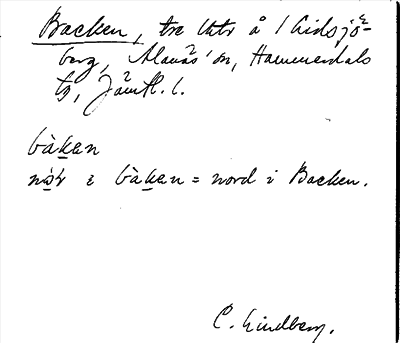 Backen, tre lhtr å Lidsjö-
berg, Alanäs sn, Hammerdals
tg, Jämtl. l.
bàkan
nọr i bàkan = nord i Backen.
C. Lindberg.